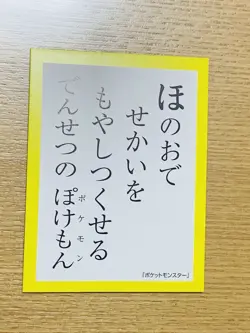 ほのおで
せかいを
もやしつくせる
でんせつの ぽけもん
ポケモン
「ポケットモンスター」